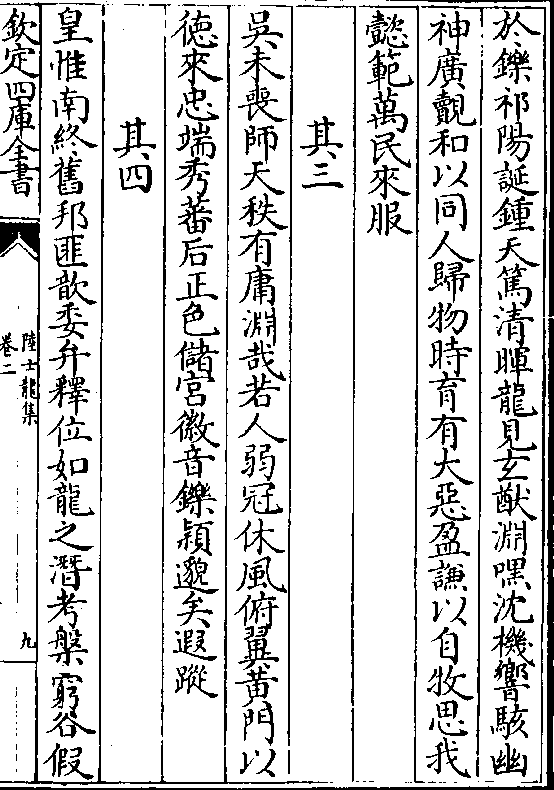 於鑠祁陽誕鍾天篤清暉龍見玄猷淵嘿沈機響駭幽
神廣覿和以同人歸物時育有大惡盈謙以自牧思我
懿範萬民來服
其三
吳未喪師天秩有庸淵哉若人弱冠休風俯翼黃門以
徳來忠端秀蕃后正色儲宮徽音鑠穎邈矣遐蹤
其四
皇惟南終舊邦匪歆委弁釋位如龍之潛考槃窮谷假
欽定四庫全書
陸士龍集
卷二
九